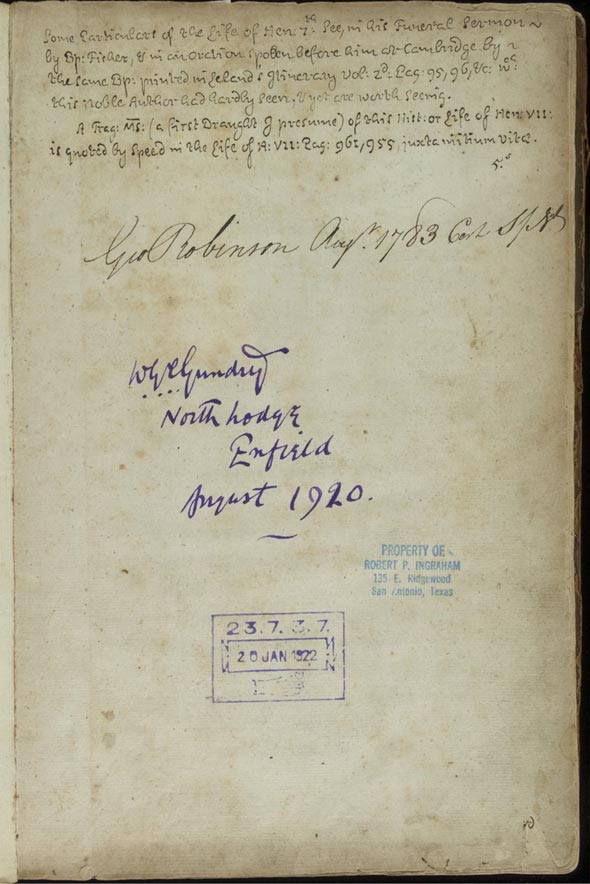 Some Particulars of the Life of Hen: 7.th See, in his Funeral Sermon
by Bp: Fisher, & in an Oration spoken before him at Cambridge by
the same Bp: printed in Leland's Itinerary Vol: 2.d Pag: 95, 96, &c: wch:
this Noble Author had hardly seen, & yet are worth seeing.
A Frag: MS: (a first Draught I presume) of this Hist: or Life of Hen: VII:
is quoted by Speed in the Life of H: VII: Pag: 961, 955, juxta initium vitæ.
Geo Robinson Augt. 1783
Gundry
North Lodge
Enfield
August 1920.
PROPERTY OF
ROBERT P. INGRAHAM
135 E. Ridgewood
San Antonio, Texas
23.7.37.
20 JAN 1922